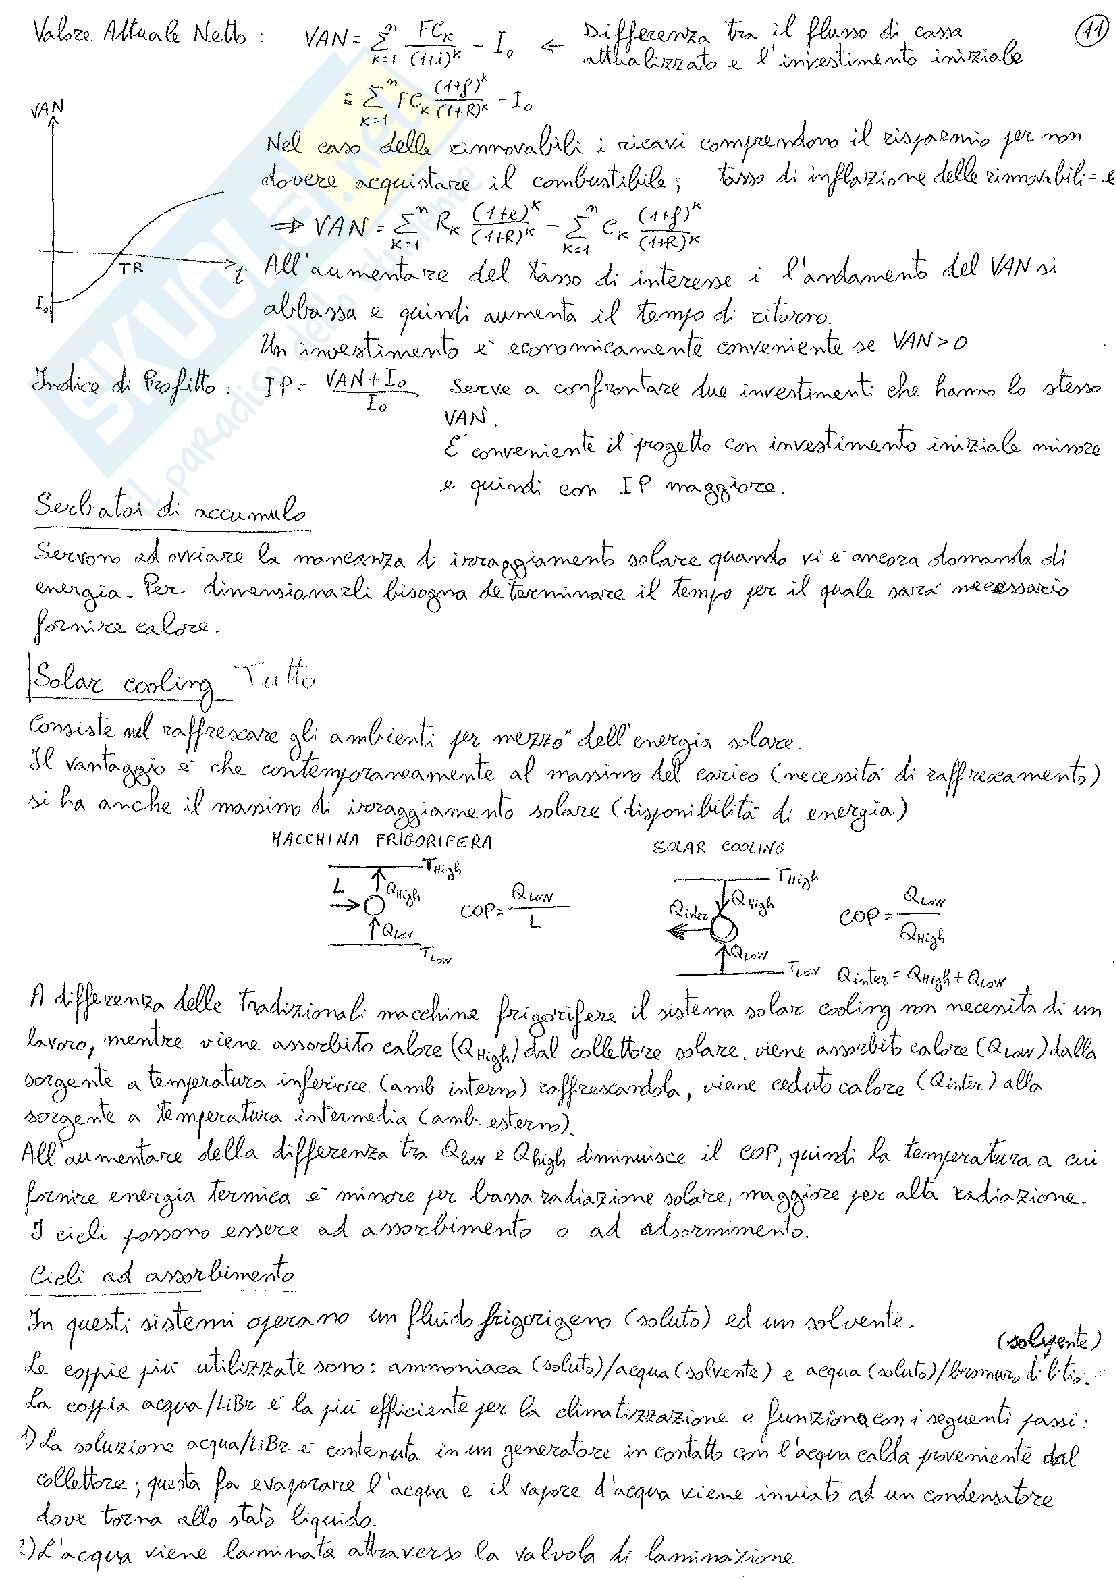 11
Valore Attuale Netto : VAN = Σ_{k=1}^{n} FC_k/(1+i)^k - I₀ ← Differenza tra il flusso di cassa
attualizzato e l'investimento iniziale
= Σ_{k=1}^{n} FC_k (1+f)^k/(1+R)^k - I₀
VAN
Nel caso delle rinnovabili i ricavi comprendono il risparmio per non
dovere acquistare il combustibile; tasso di inflazione delle rinnovabili = e
⇒ VAN = Σ_{k=1}^{n} R_k (1+e)^k/(1+R)^k - Σ_{k=1}^{n} C_k (1+f)^k/(1+R)^k
TR
I₀
All'aumentare del tasso di interesse i l'andamento del VAN si
abbassa e quindi aumenta il tempo di ritorno.
Un investimento è economicamente conveniente se VAN > 0
Indice di Profitto : IP = (VAN + I₀)/I₀ Serve a confrontare due investimenti che hanno lo stesso
VAN.
È conveniente il progetto con investimento iniziale minore
e quindi con IP maggiore.
Serbatoi di accumulo
Servono ad ovviare la mancanza di irraggiamento solare quando vi è ancora domanda di
energia. Per dimensionarli bisogna determinare il tempo per il quale sarà necessario
fornire calore.
Solar cooling Tutto
Consiste nel raffrescare gli ambienti per mezzo dell'energia solare.
Il vantaggio è che contemporaneamente al massimo del carico (necessità di raffrescamento)
si ha anche il massimo di irraggiamento solare (disponibilità di energia)
MACCHINA FRIGORIFERA SOLAR COOLING
T_High T_High
L Q_High COP = Q_Low/L Q_inter Q_High COP = Q_Low/Q_High
Q_Low Q_Low
T_Low T_Low Q_inter = Q_High + Q_Low
A differenza delle tradizionali macchine frigorifere il sistema solar cooling non necessita di un
lavoro, mentre viene assorbito calore (Q_High) dal collettore solare. viene assorbito calore (Q_Low) dalla
sorgente a temperatura inferiore (amb interno) raffrescandola, viene ceduto calore (Q_inter) alla
sorgente a temperatura intermedia (amb. esterno).
All'aumentare della differenza tra Q_low e Q_high diminuisce il COP, quindi la temperatura a cui
fornire energia termica è minore per bassa radiazione solare, maggiore per alta radiazione.
I cicli possono essere ad assorbimento o ad adsormimento.
Cicli ad assorbimento
In questi sistemi operano un fluido frigorigeno (soluto) ed un solvente.
(solvente)
Le coppie più utilizzate sono: ammoniaca (soluto)/acqua (solvente) e acqua (soluto)/bromuro di litio.
La coppia acqua/LiBr è la più efficiente per la climatizzazione e funziona con i seguenti passi:
1) La soluzione acqua/LiBr è contenuta in un generatore in contatto con l'acqua calda proveniente dal
collettore; questa fa evaporare l'acqua e il vapore d'acqua viene inviato ad un condensatore
dove torna allo stato liquido.
2) L'acqua viene laminata attraverso la valvola di laminazione